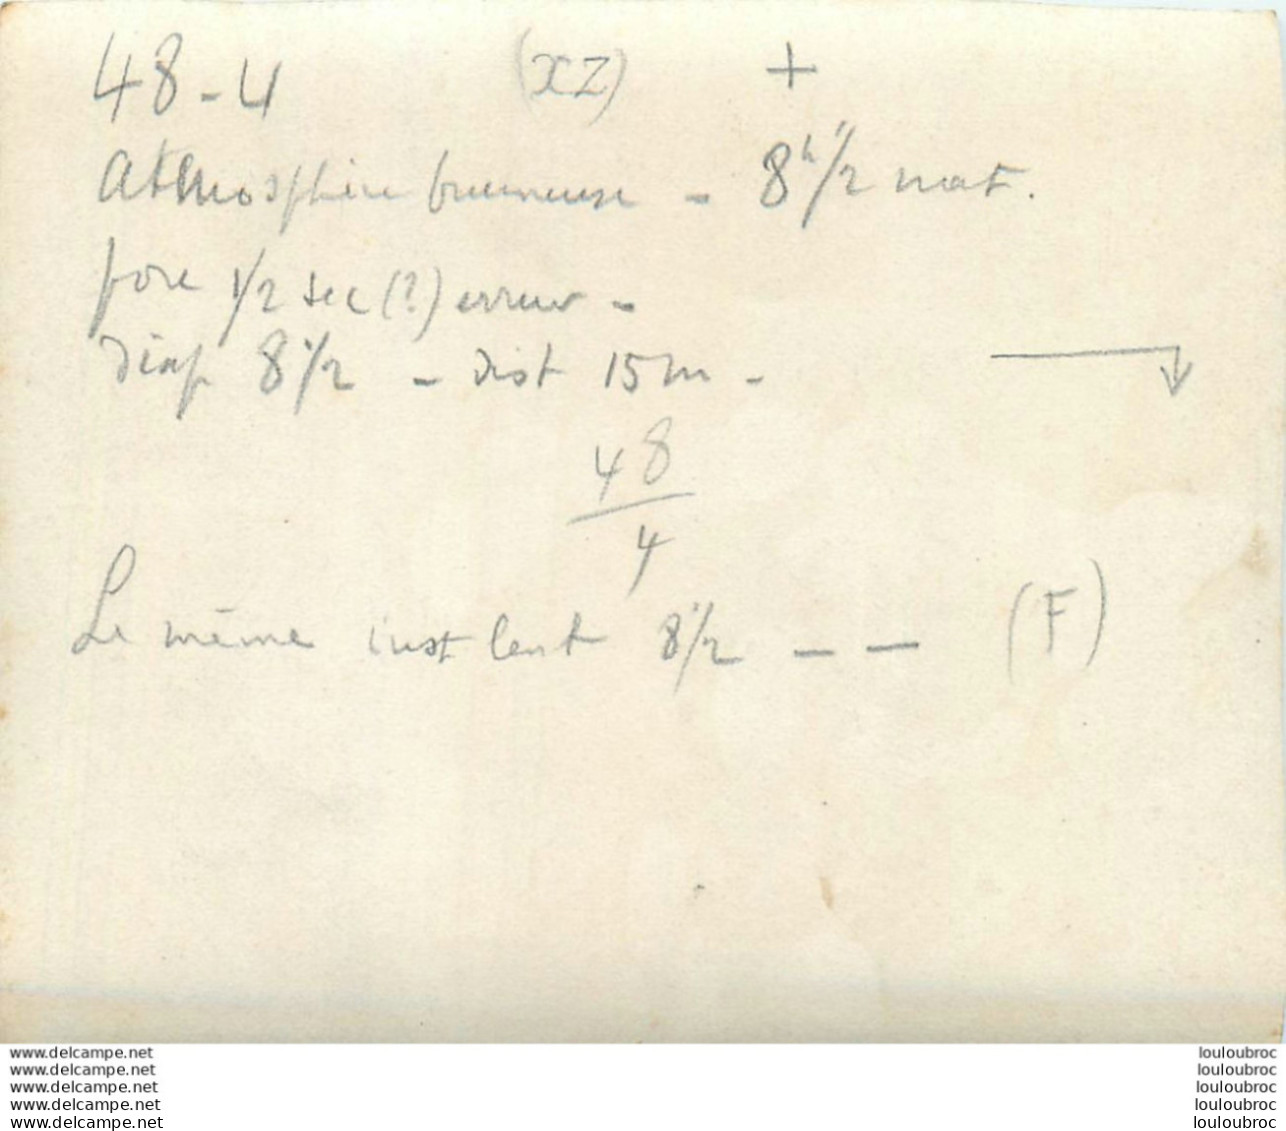 48-4 (XZ) +
Atmosphère brumeuse - 8h 1/2 mat.
pose 1/2 sec (?) erreur -
Diaf 8 1/2 - Dist 15 m -
48/4
Le même inst lent 8 1/2 - - (F)
www.delcampe.net louloubroc
www.delcampe.net louloubroc
www.delcampe.net louloubroc
www.delcampe.net louloubroc
www.delcampe.net louloubroc